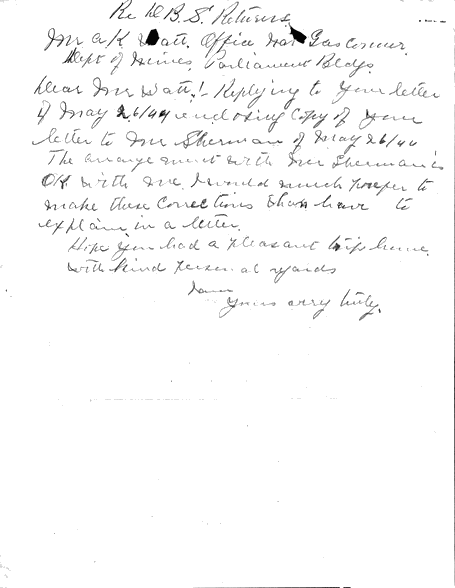 Re D.B.S. Returns
Mr A K Watt. Office Natural Gas Commr.
Dept of Mines, Parliament Bldgs.
Dear Mr Watt!- Replying to your letter
of May 26/44 enclosing Copy of your
letter to Mr Sherman of May 26/44
The arrangement with Mr Sherman is
OK with me, I would much prefer to
make these corrections than have to
explain in a letter.
Hope you had a pleasant trip home
with kind personal regards
Yours very truly,